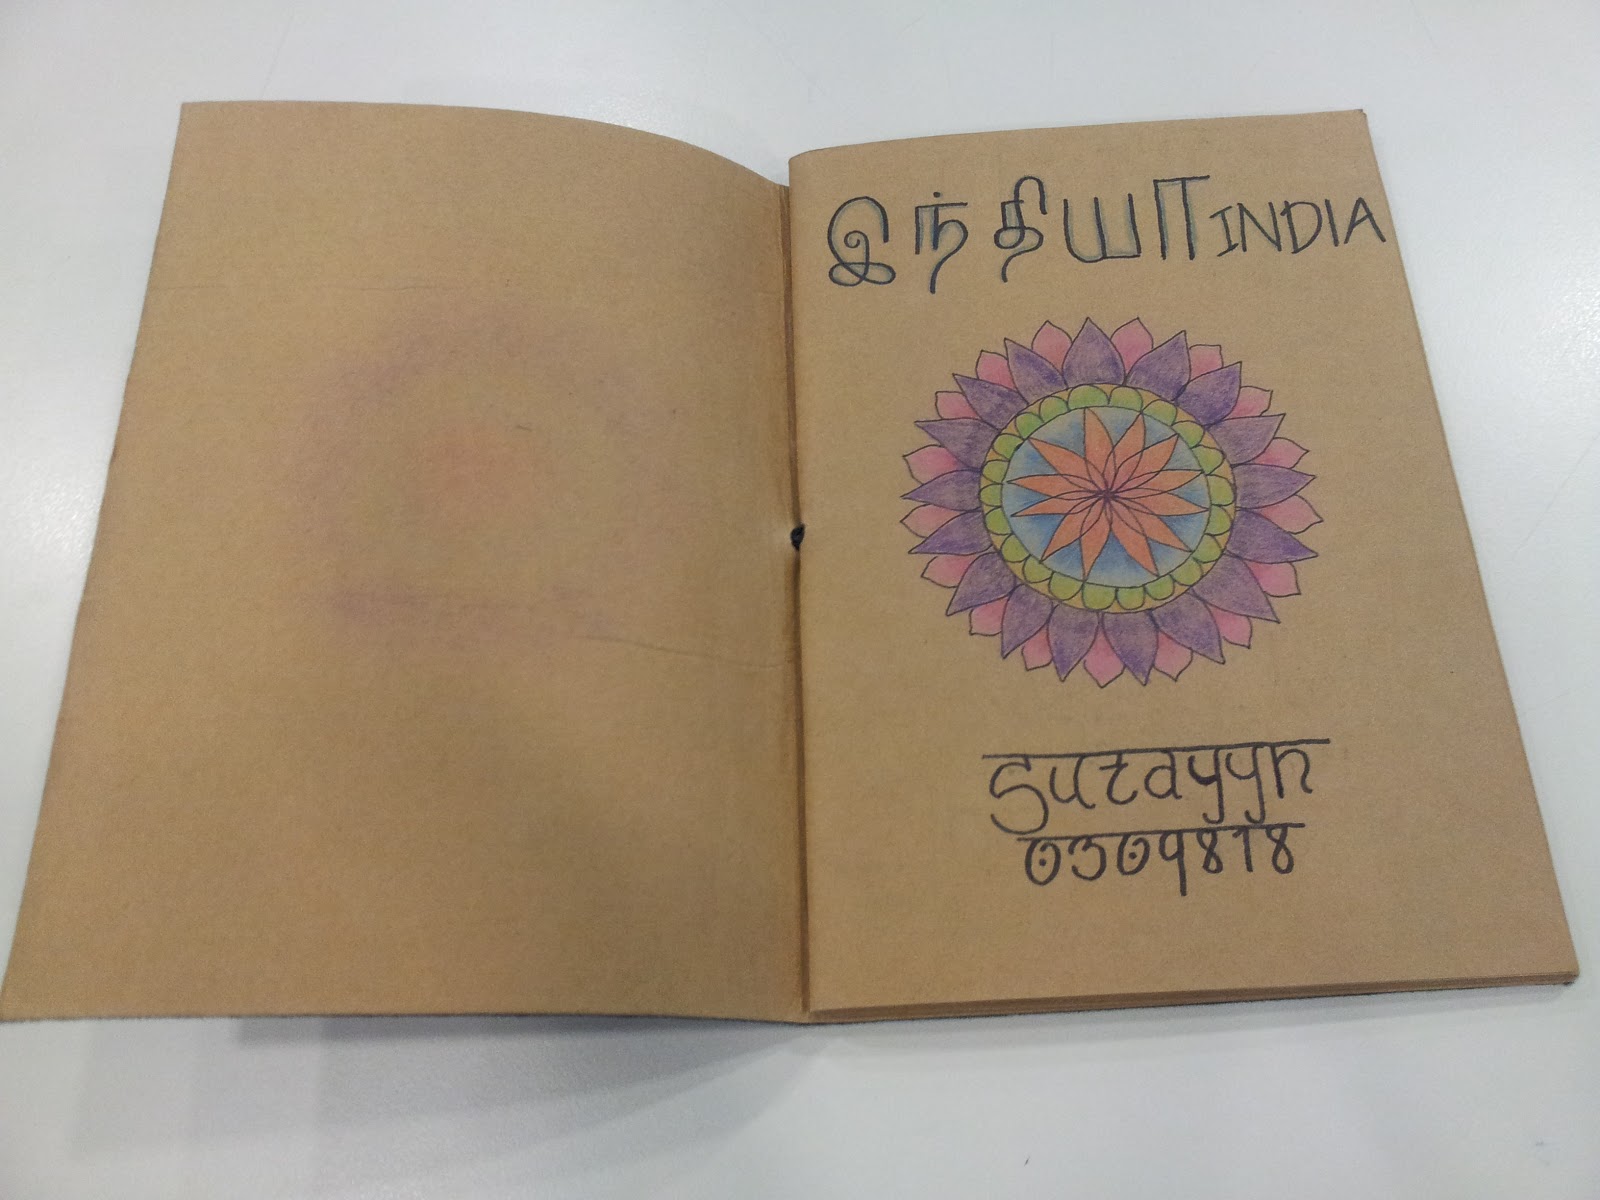 இந்தியா INDIA
sutayyn
0309818